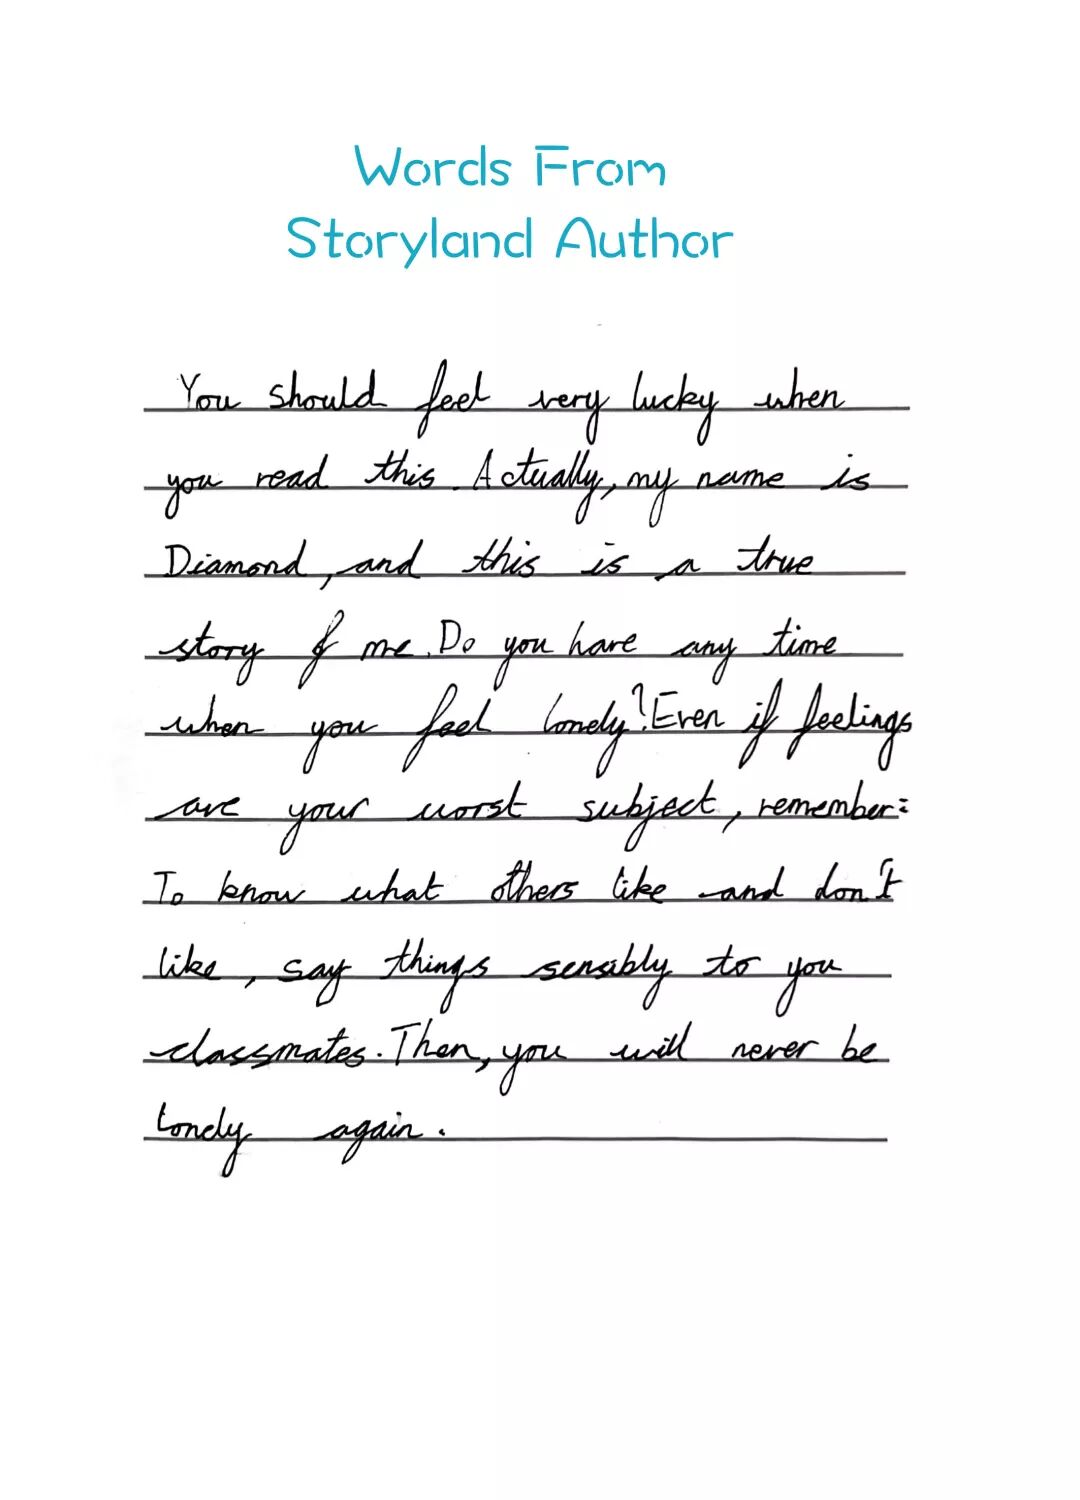 Words From
Storyland Author
You should feel very lucky when
you read this. Actually, my name is
Diamond, and this is a true
story of me. Do you have any time
when you feel lonely? Even if feelings
are your worst subject, remember:
To know what others like and don't
like, say things sensibly to you
classmates. Then, you will never be
lonely again.